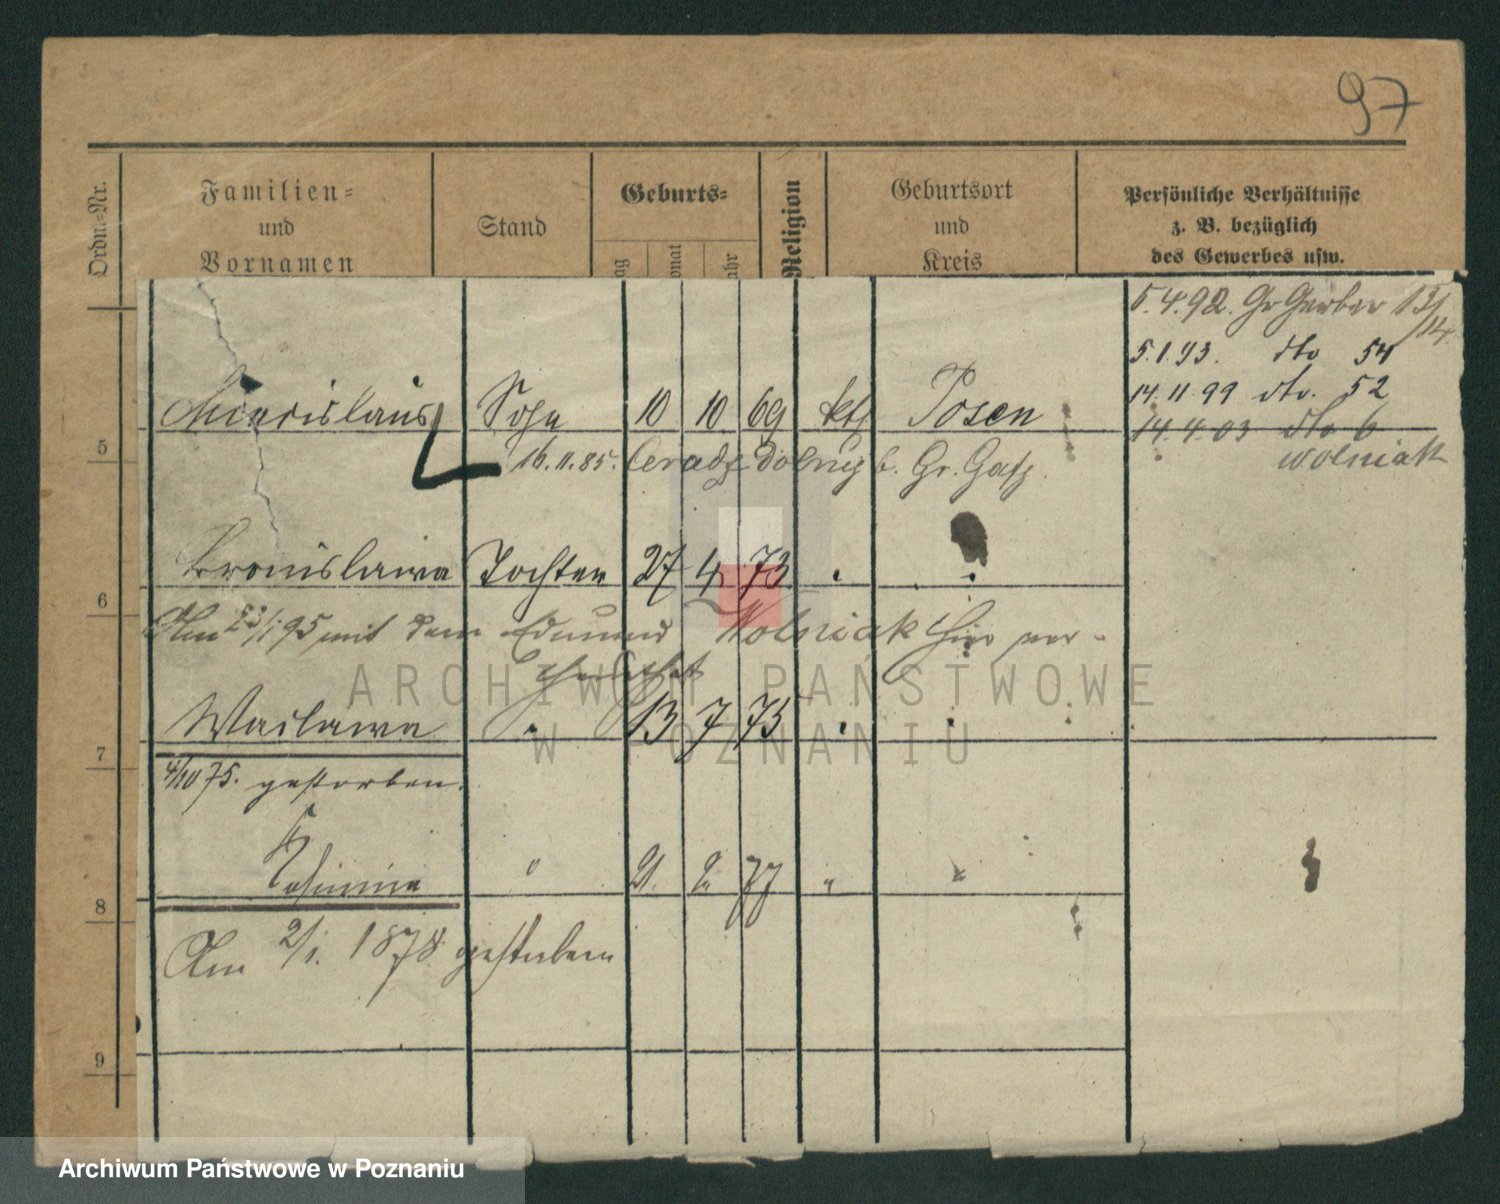 97
Ordn.-Nr.
Familien- und Vornamen
Stand
Geburts-
Religion
Geburtsort und Kreis
Persönliche Verhältnisse z. B. bezüglich des Gewerbes usw.
5.4.92. Gr Gerber 13/14.
5.1.93. dto 54
14.11.99 dto. 52
Mieczislaus Sohn 10 10 69 kth Posen
14.4.03 dto 6
Wolniak
5
16.11.85. b. Gr.
Bronislawa Tochter 27 4 73
6
Am 23/1 95 mit dem Edmund Wolniak hier ver-
heirathet
Waclawa 13 7 75
7
4/10 75. gestorben.
" 21. 2. 77 "
8
Am 2/1. 1878 gestorben
9
ARCHIWUM PAŃSTWOWE
W POZNANIU
Archiwum Państwowe w Poznaniu